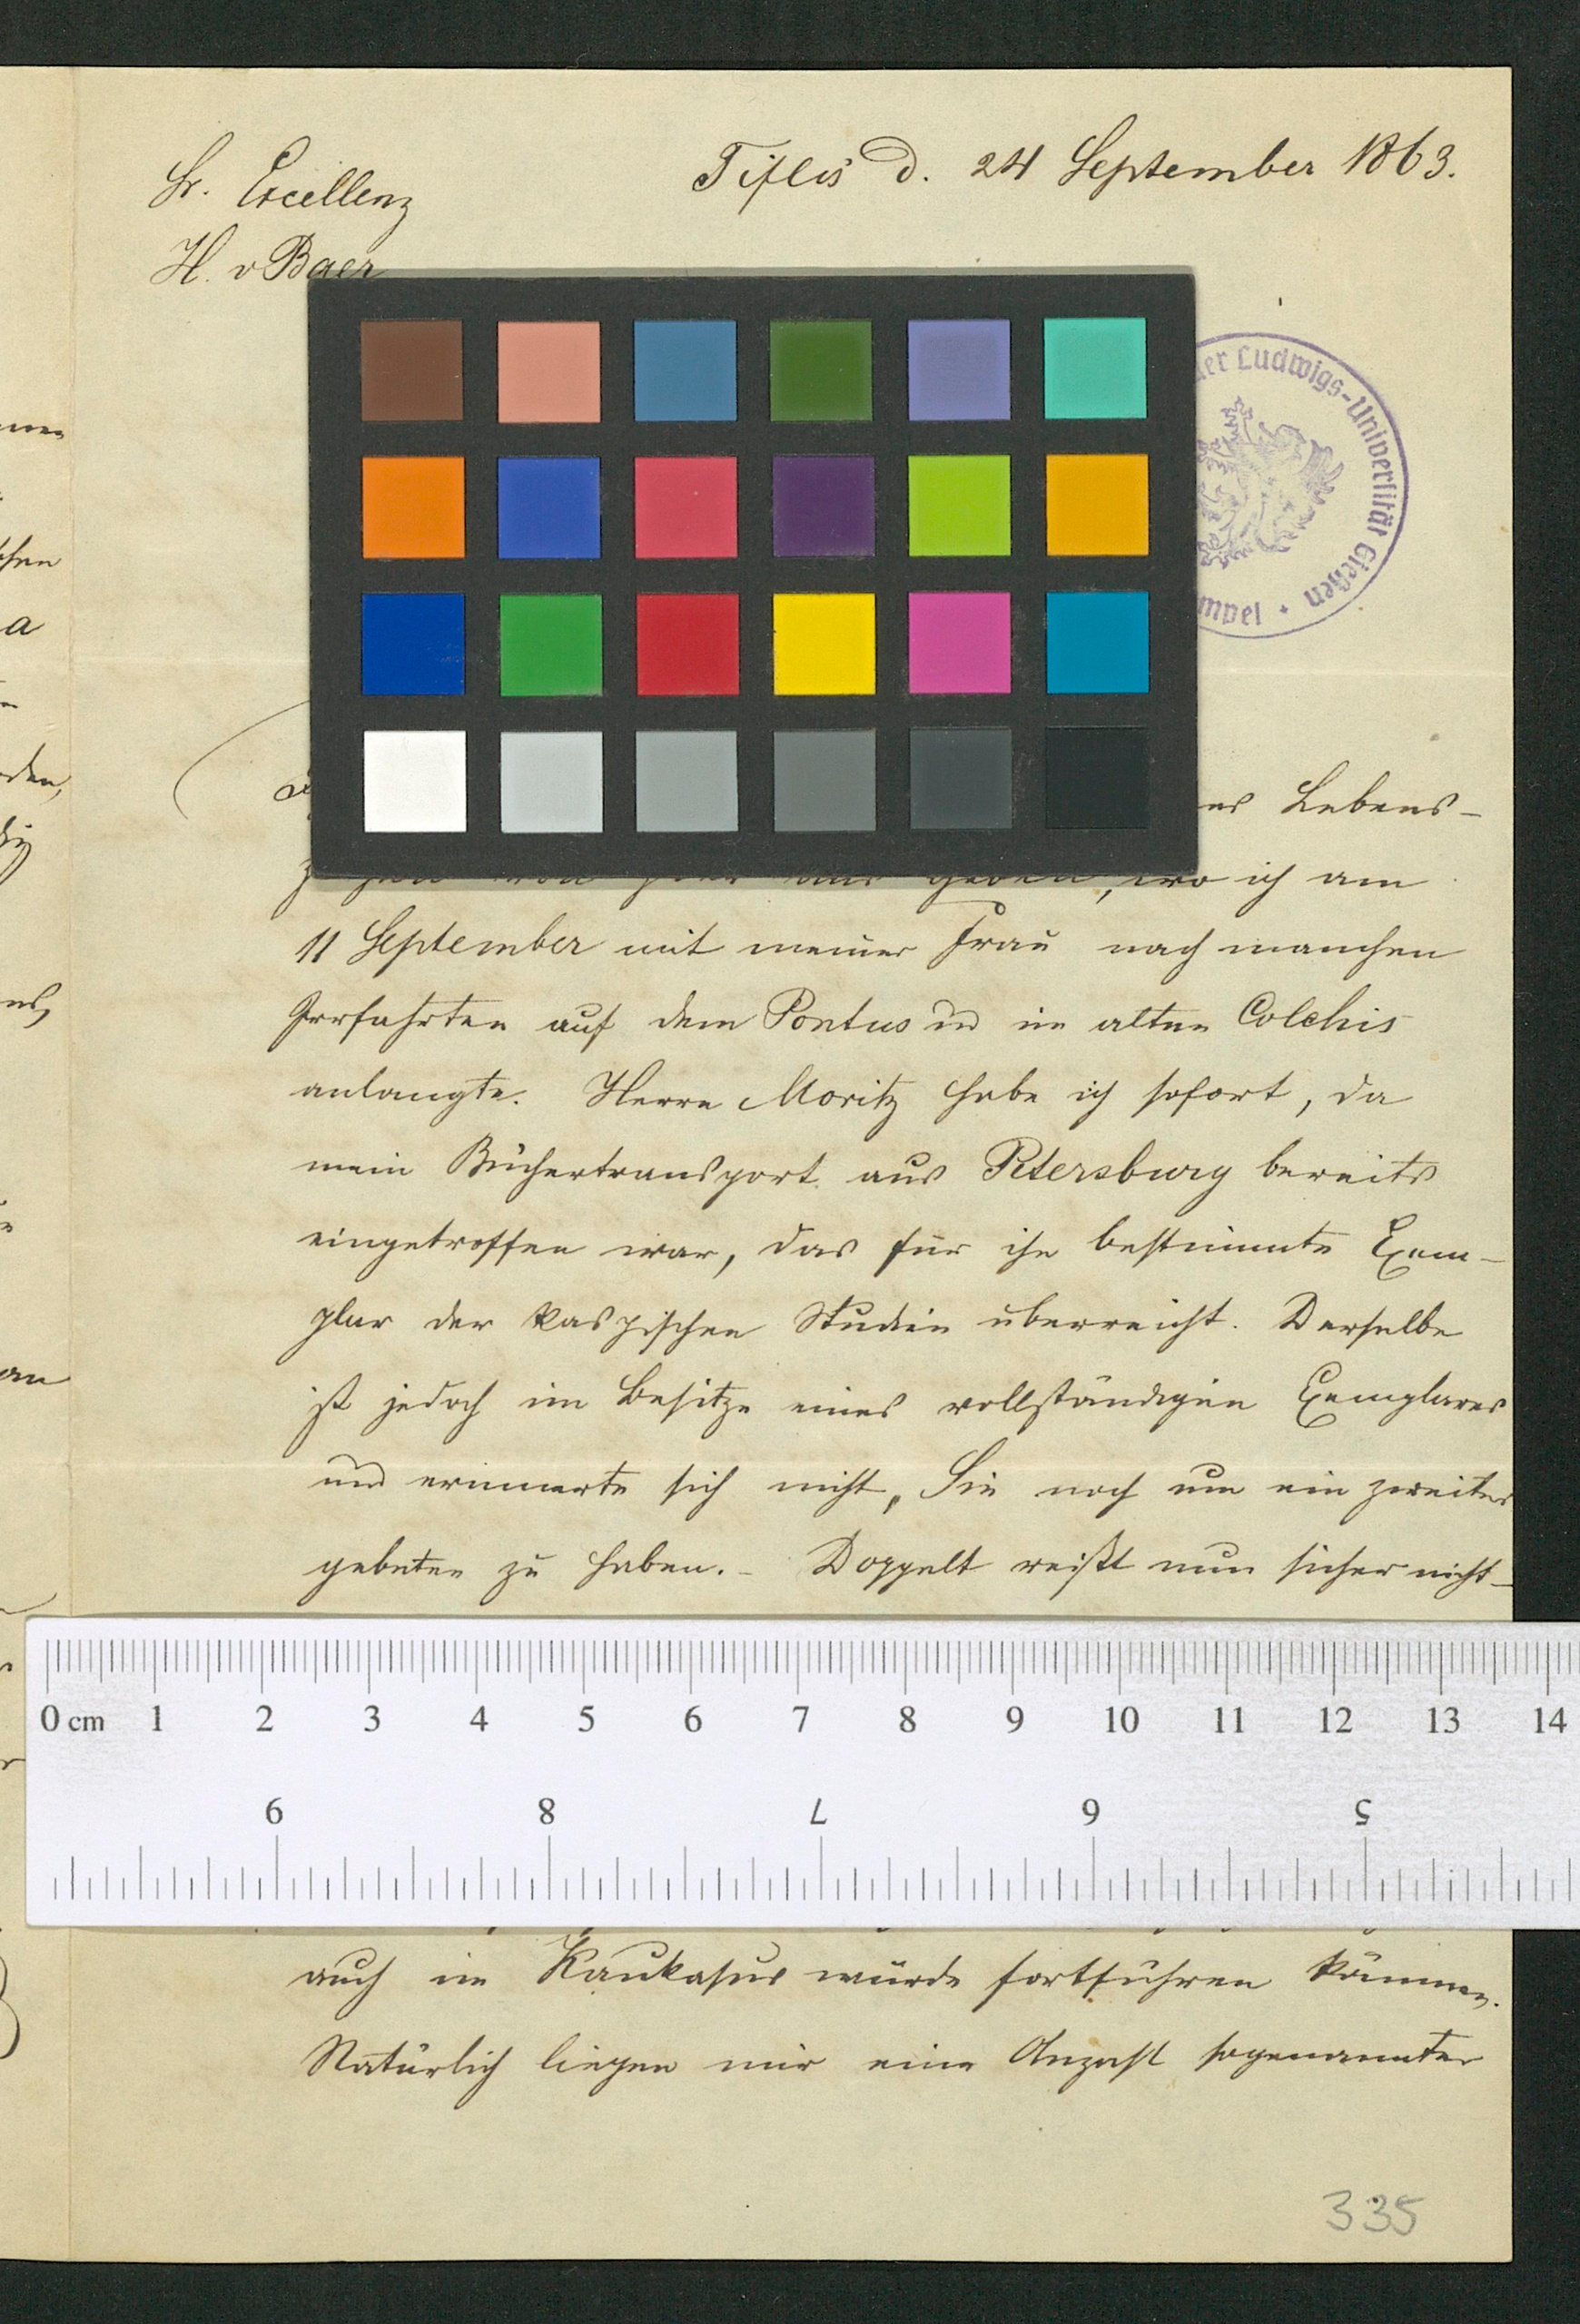 Tiflis d. 24 September 1863.
Sr. Excellenz
H. v Baer
der Ludwigs-Universität Gießen
es Lebens-
geben, wo ich am
11 September mit meiner Frau nach manchen
Irrfahrten auf dem Pontus und im alten Colchis
anlangte. Herrn Moritz habe ich sofort, da
mein Büchertransport aus Petersburg bereits
eingetroffen war, das für ihn bestimmte Exem-
plar der Kaspischen Studien überreicht. Derselbe
ist jedoch im Besitze eines vollständigen Exemplares
und erinnerte sich nicht, Sie noch um ein zweites
gebeten zu haben. - Doppelt reißt nun sicher nicht -
0 cm 1 2 3 4 5 6 7 8 9 10 11 12 13 14
9 8 7 6 5
auch im Kaukasus würde fortführen können.
Natürlich liegen mir eine Anzahl sogenannter
335